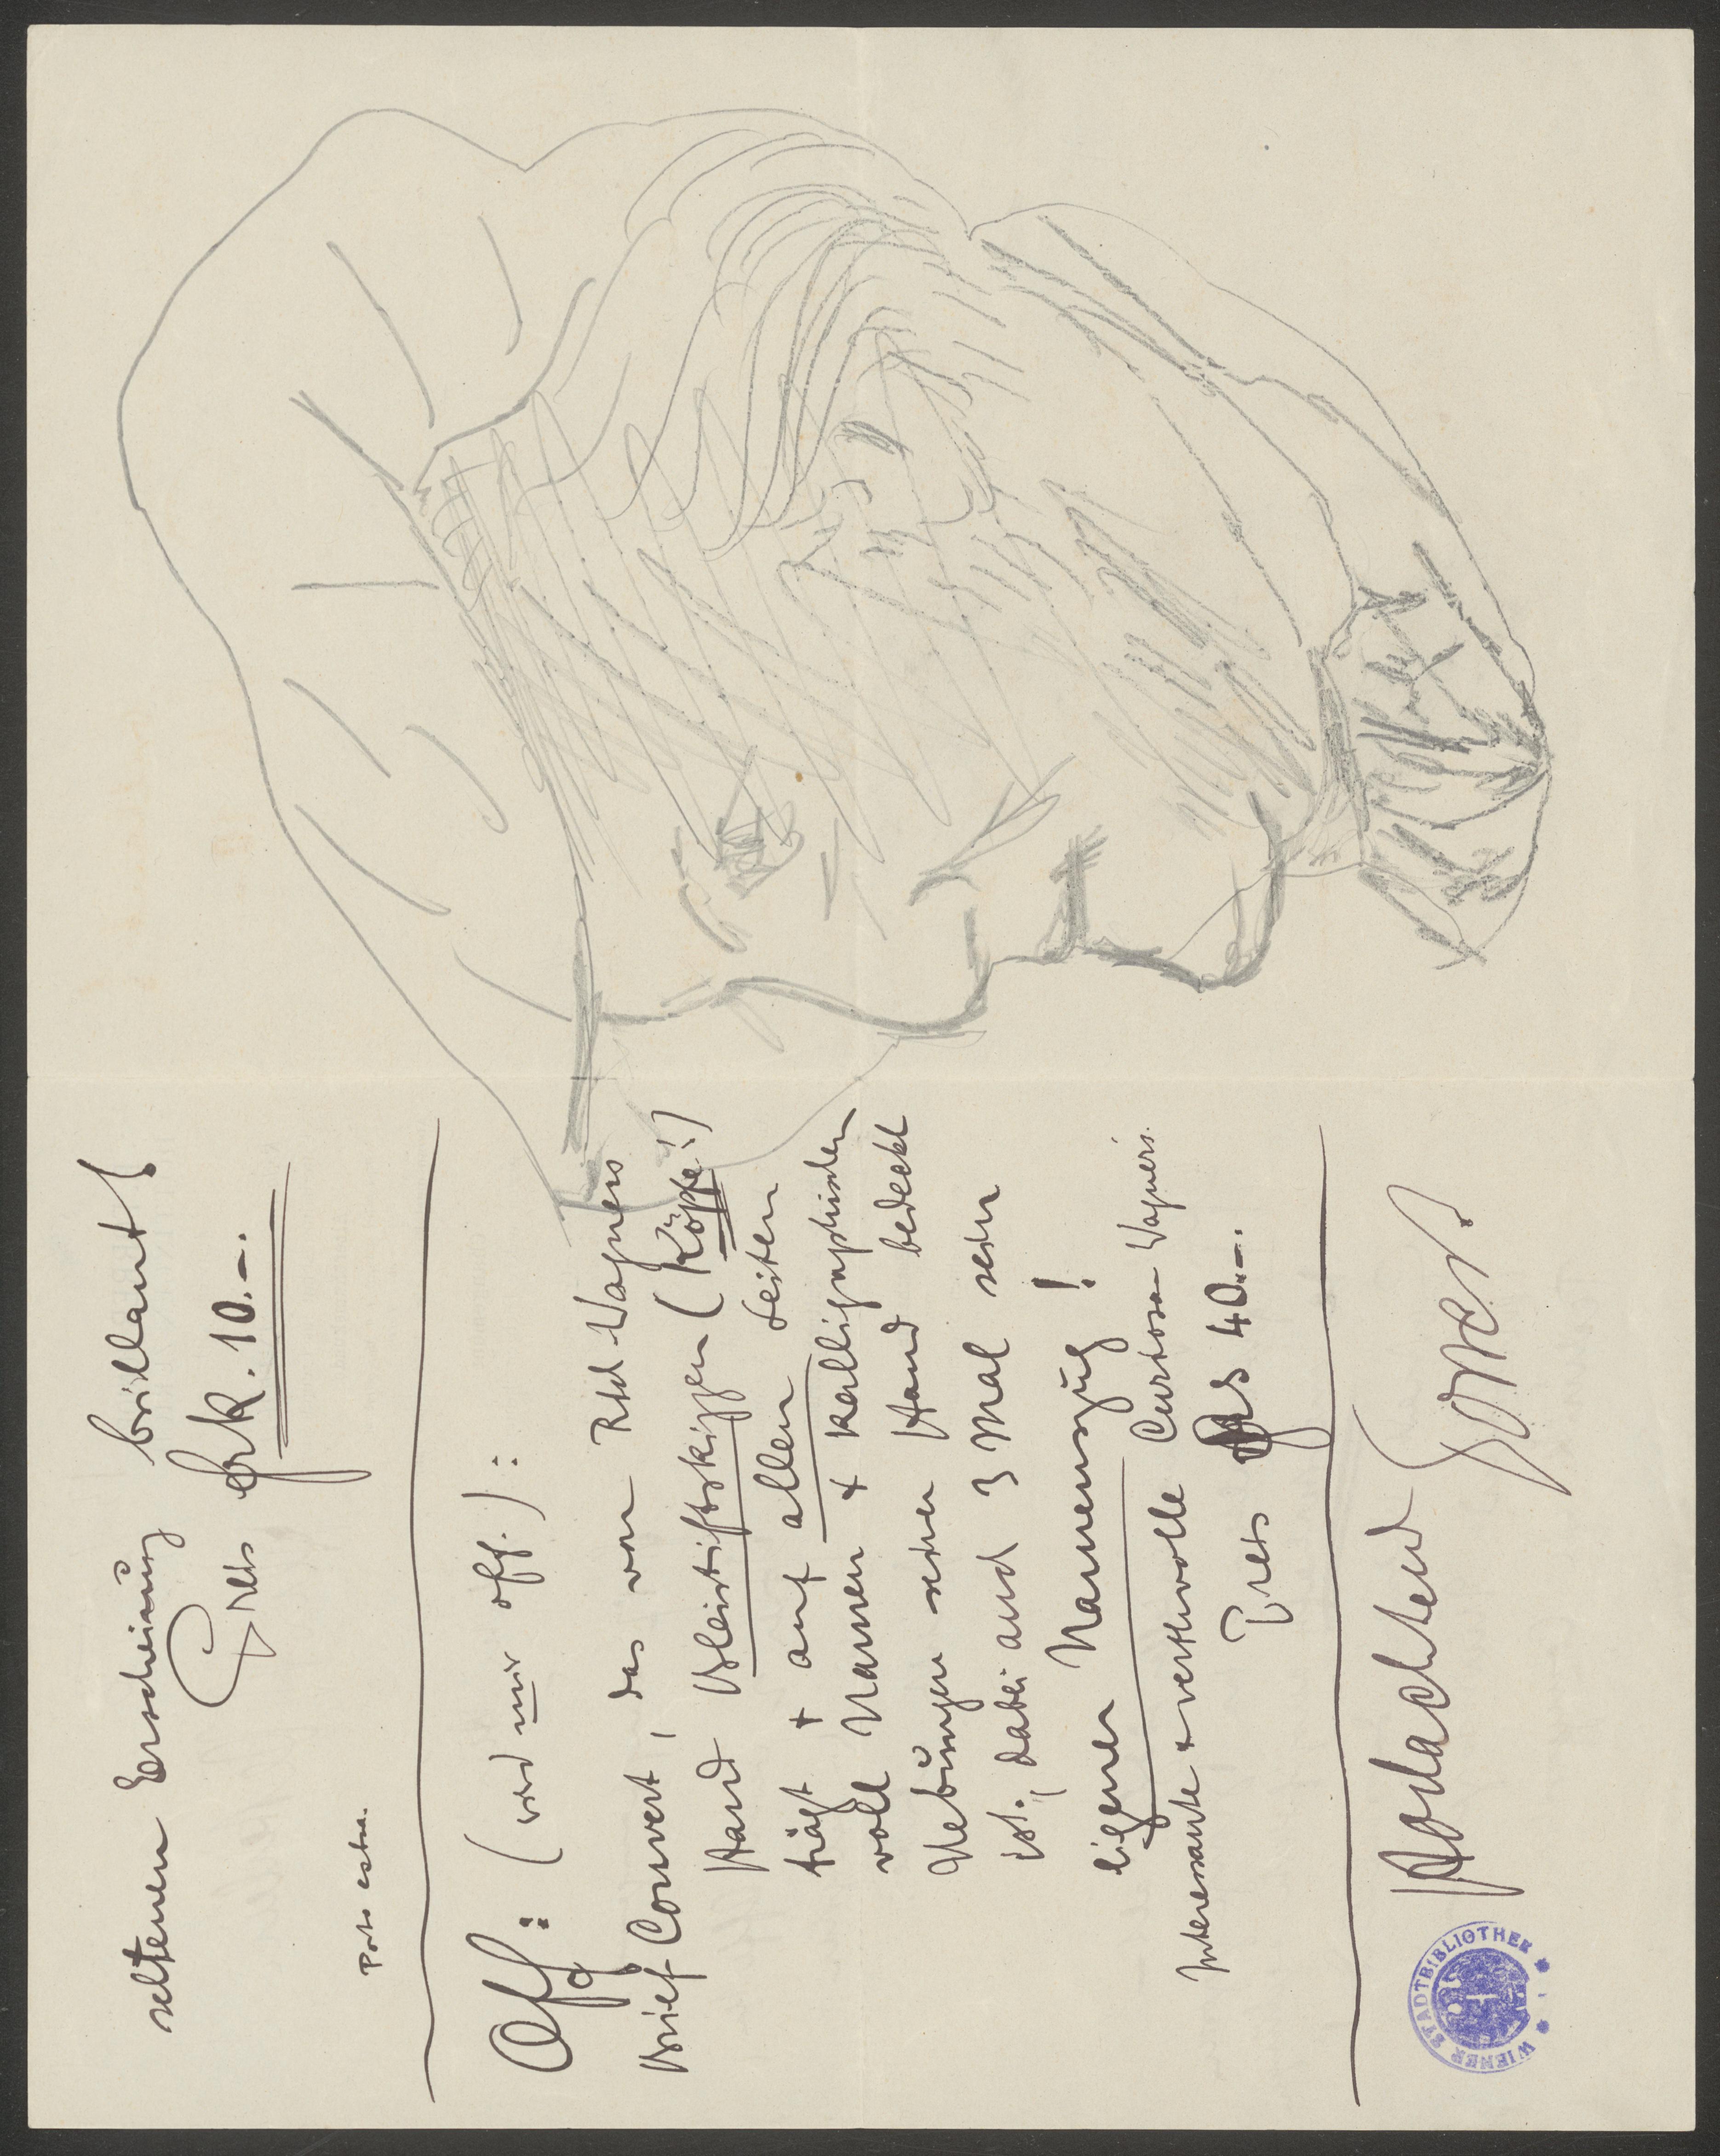 seltenen Erscheinung brillant
Preis frk. 10.–.
Porto extra.
Off: (von mir off.):
Brief Couvert, das von Rich. Wagners
Hand Bleistiftskizzen (Köpfe!)
trägt + auf allen Seiten
voll Namen + kalligraphischen
Uebungen seiner Hand bedeckt
ist, dabei auch 3 Mal sein
eigener Namenszug!
Interessante + werthvolle Curiosa Wagners.
Preis frs 40.–.
Hochachtend
WIENER STADTBIBLIOTHEK